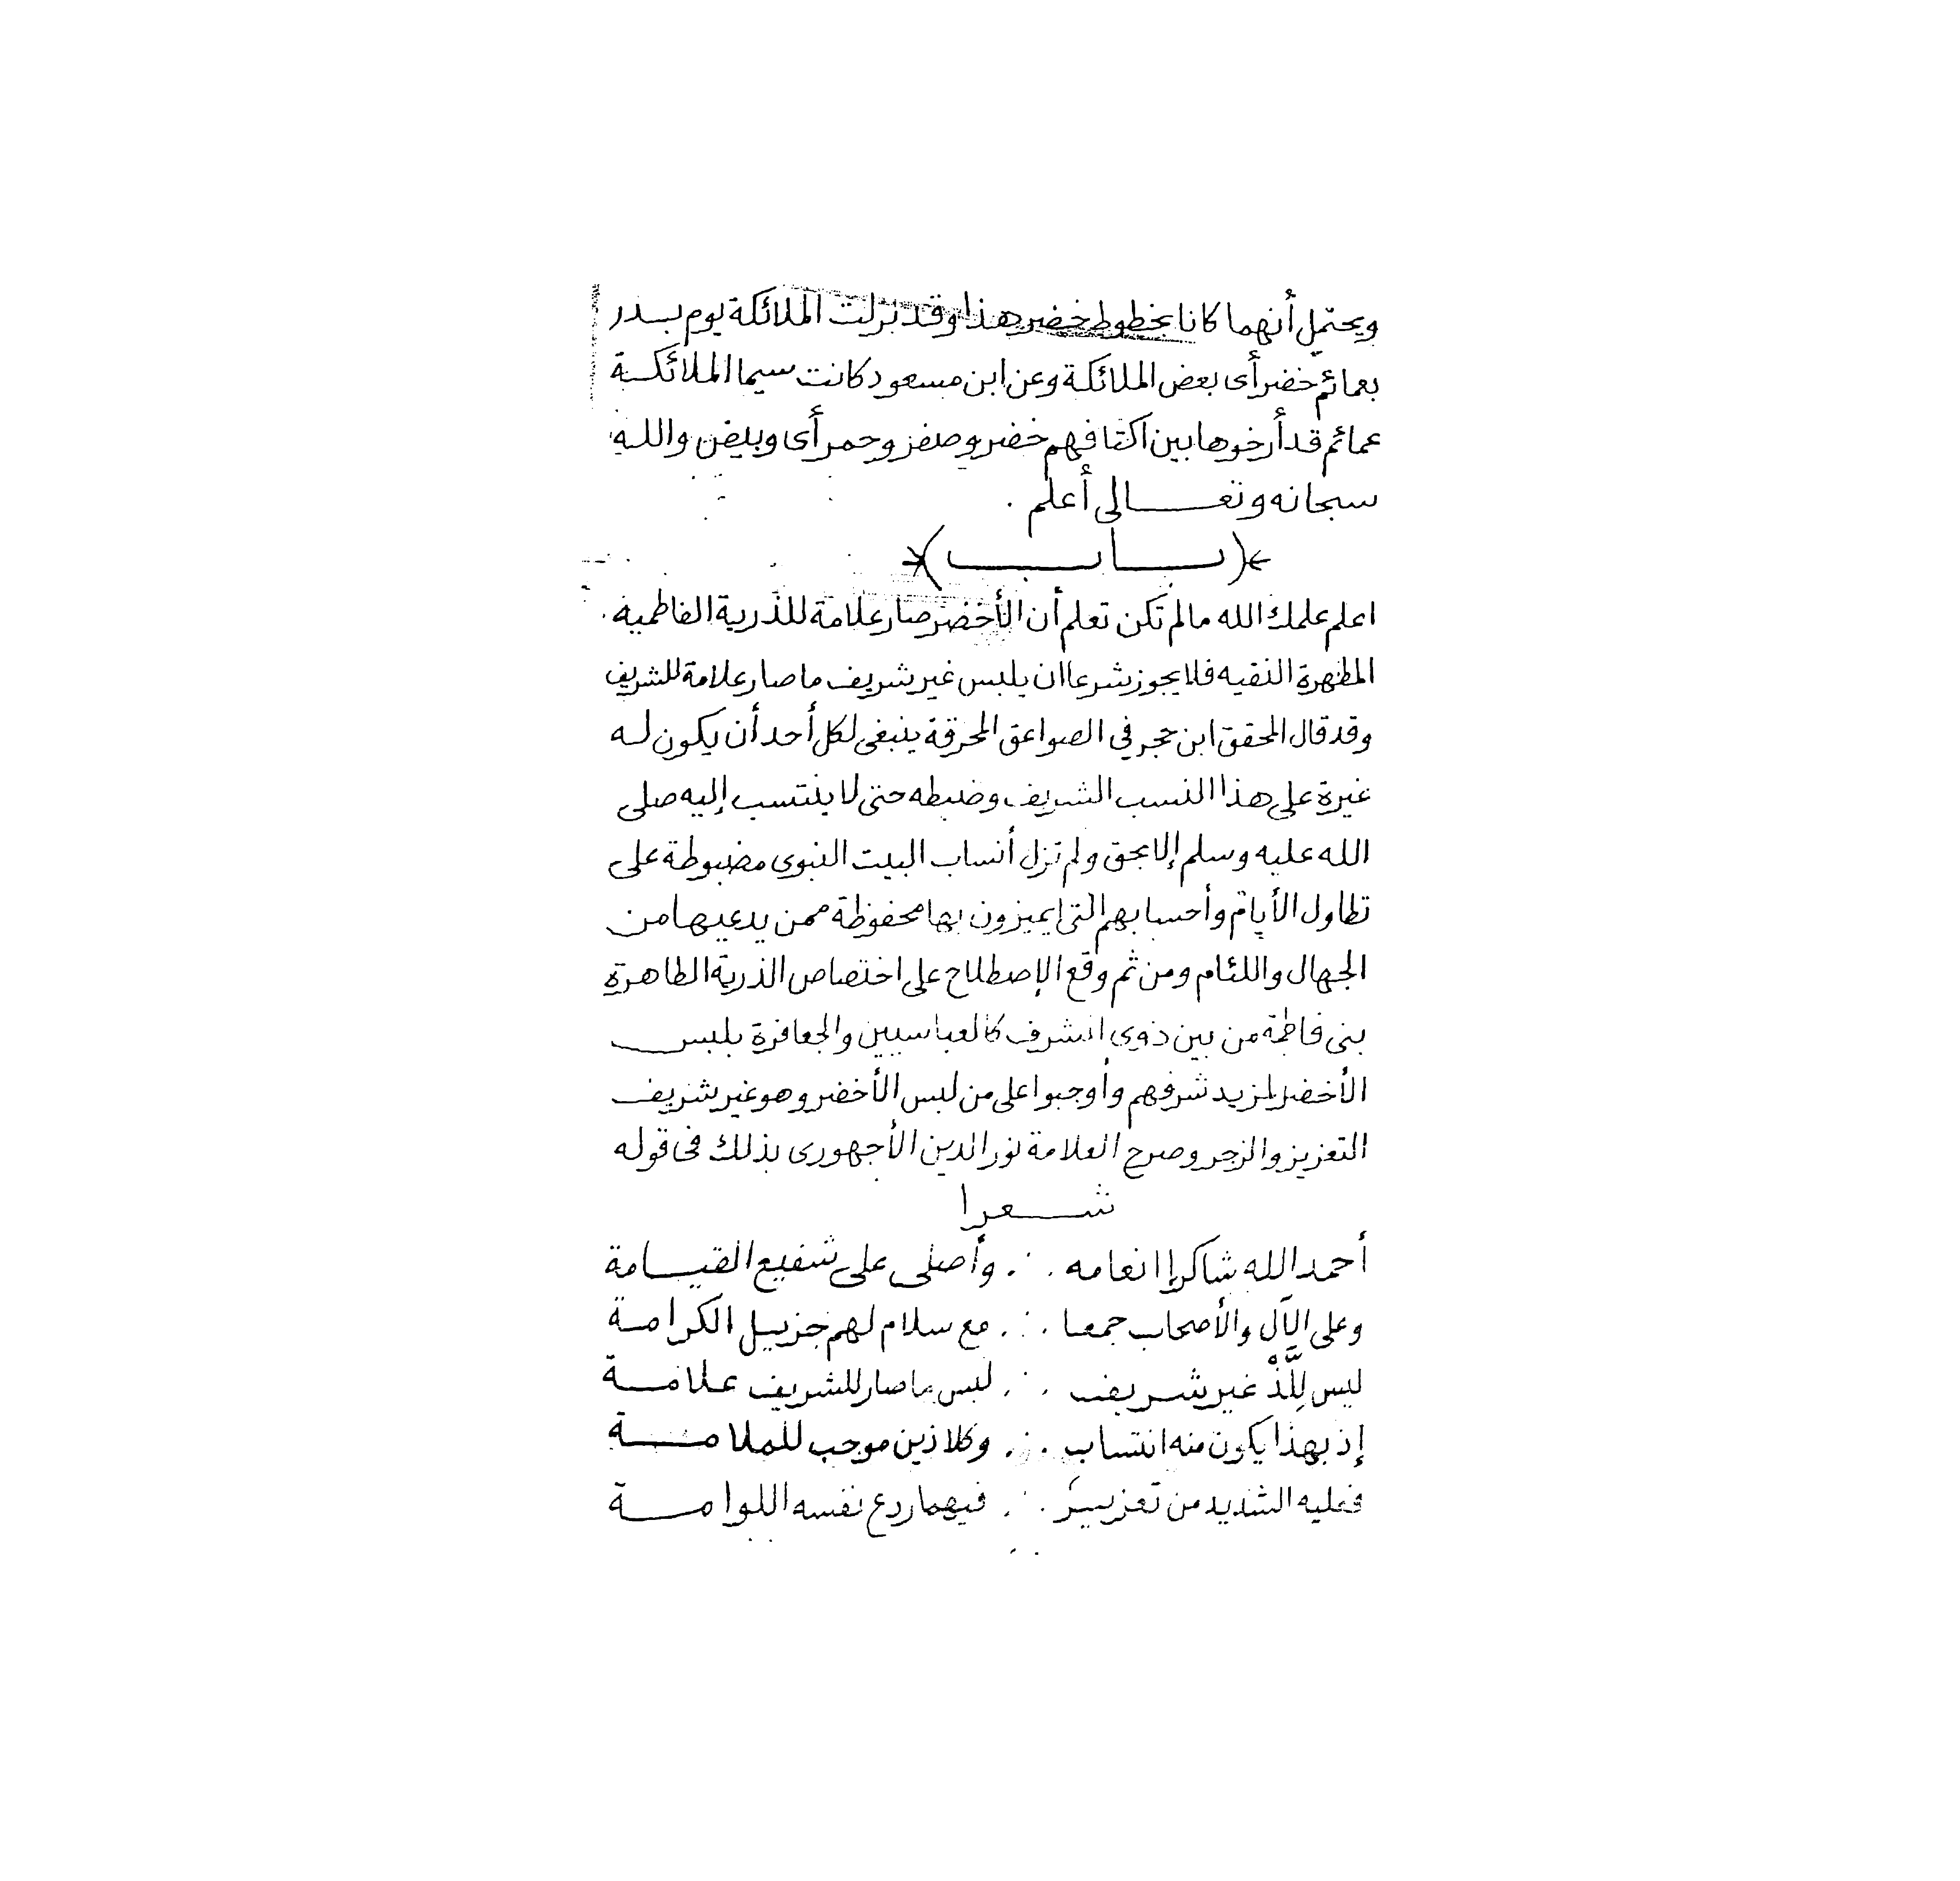 ويحتمل أنهما كانا بخطوط خضر هذا وقد نزلت الملائكة يوم بدر
بعمائم خضر أى بعض الملائكة وعن ابن مسعود كانت سيما الملائكة
عمائم قد أرخوها بين اكتافهم خضر وصفر وحمر أى وبيض والله
سبحانه وتعالى أعلم .
(باب)
اعلم علمك الله ما لم تكن تعلم أن الأخضر صار علامة للذرية الفاطمية
المطهرة النقيه فلا يجوز شرعا ان يلبس غير شريف ما صار علامة للشريف
وقد قال المحقق ابن حجر في الصواعق المحرقة ينبغى لكل أحد أن يكون له
غيرة على هذا النسب الشريف وضبطه حتى لا ينتسب إليه صلى
الله عليه وسلم إلا بحق ولم تزل أنساب البيت النبوى مضبوطة على
تطاول الأيام وأحسابهم التى يميزون بها محفوظة ممن يدعيها من
الجهال واللئام ومن ثم وقع الإصطلاح على اختصاص الذرية الطاهرة
بنى فاطمة من بين ذوى الشرف كالعباسيين والجعافرة بلبس
الأخضر لمزيد شرفهم وأوجبوا على من لبس الأخضر وهو غير شريف
التعزيز والزجر وصرح العلامة نور الدين الأجهورى بذلك فى قوله
شعرا
أحمد الله شاكرا إنعامه ∴ وأصلى على شفيع القيامة
وعلى الآل والأصحاب جمعا ∴ مع سلام لهم جزيل الكرامة
ليس لِلَّذْ غير شريف ∴ لبس ما صار للشريف علامة
إذ بهذا يكون منه انتساب ∴ وكلا ذين موجب للملامة
فعليه الشديد من تعزير ∴ فيهما ردع نفسه اللوامة